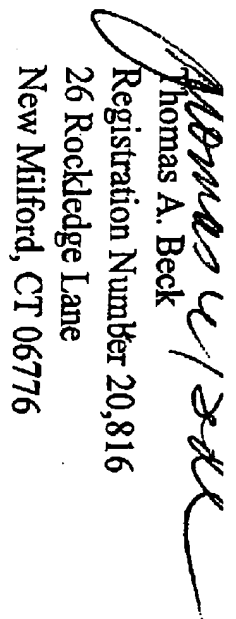 Thomas A. Beck
Registration Number 20,816
26 Rockledge Lane
New Milford, CT 06776